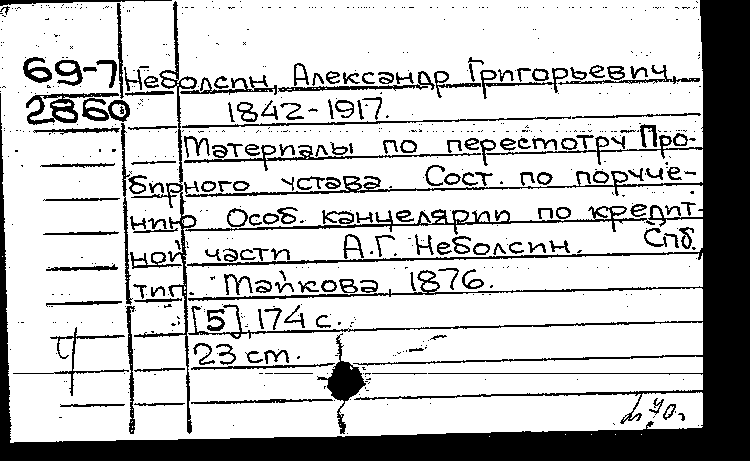 69-7 Неболсин, Александр Григорьевич,
2860 1842-1917.
Материалы по пересмотру Про-
бирного устава. Сост. по поруче-
нию Особ. канцелярии по кредит-
ной части А.Г. Неболсин. Спб.,
тип. Майкова, 1876.
[5], 174 с.
23 см.